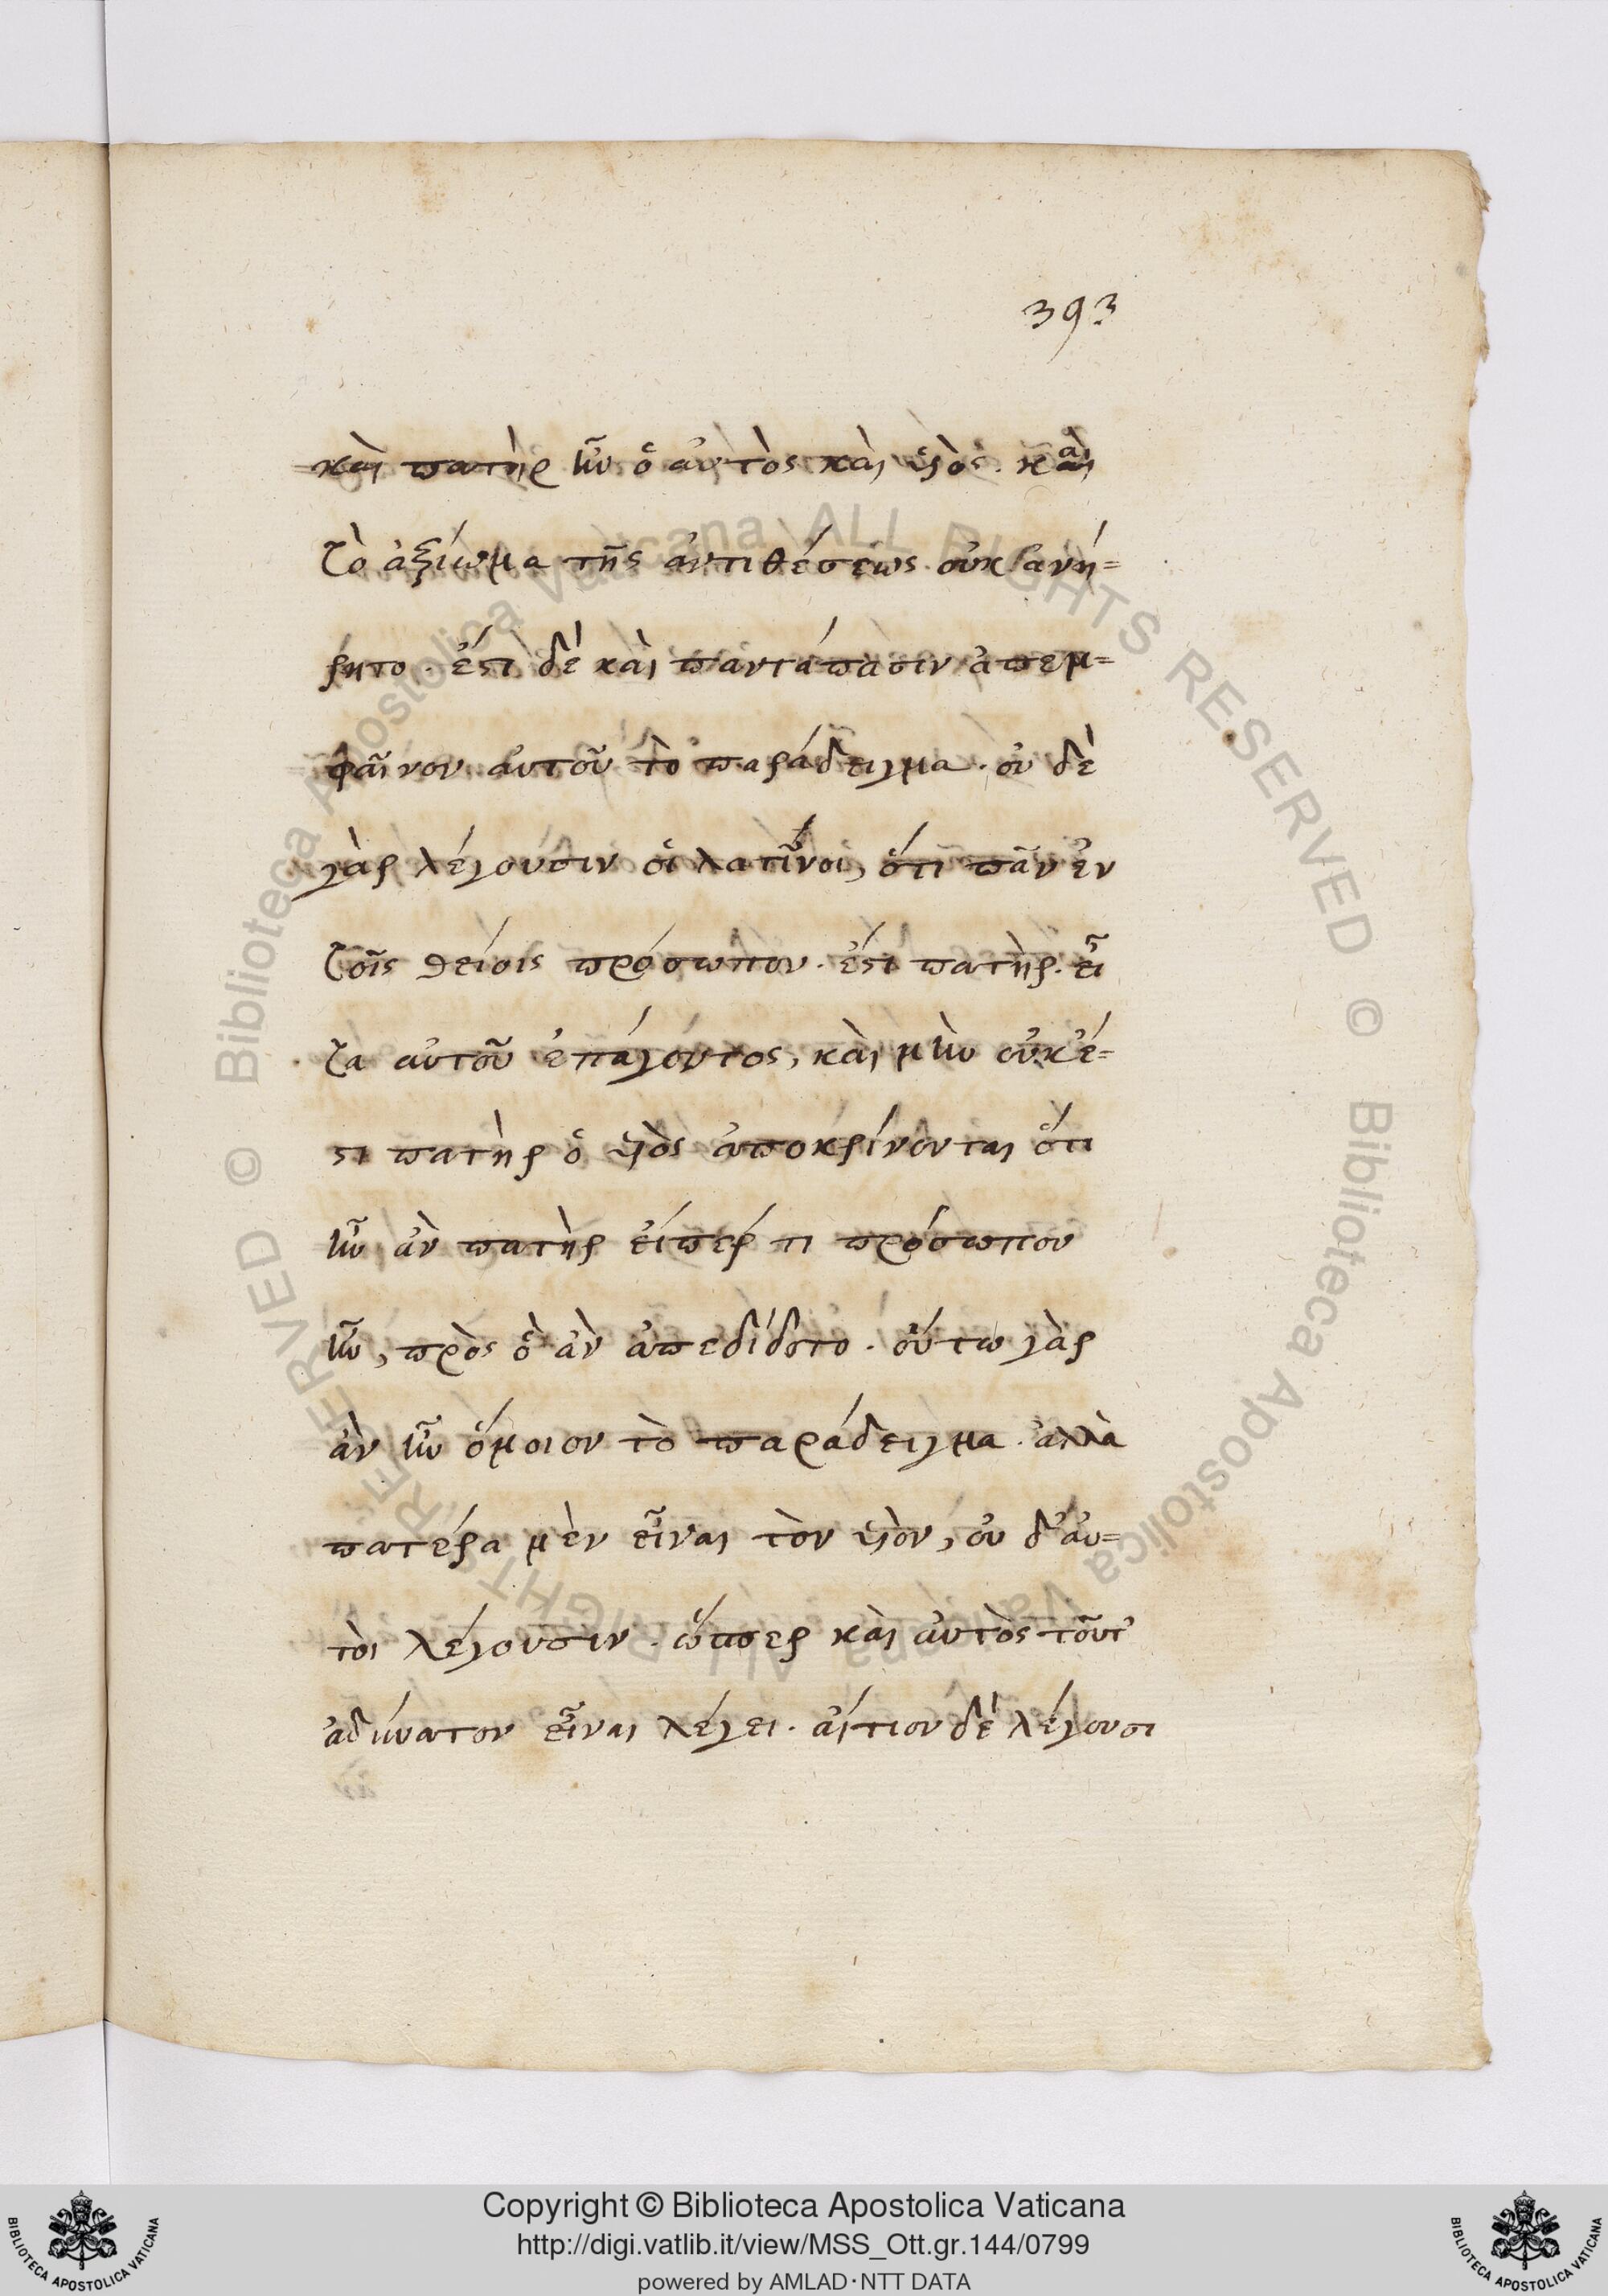 393
καὶ πατὴρ ἦν ὁ αὐτὸς καὶ υἱὸς. καὶ
τὸ ἀξίωμα τῆς ἀντιθέσεως οὐκ ἀνή=
ρητο. ἔστι δὲ καὶ παντάπασιν ἀπεμ=
φαῖνον αὐτοῦ τὸ παράδειγμα. οὐ δὲ
γὰρ λέγουσιν οἱ λατῖνοι, ὅτι πᾶν ἐν
τοῖς θείοις πρόσωπον. ἔστι πατὴρ. εἶ
τα αὐτοῦ ἐπάγοντος, καὶ μὴν οὐκ ἔ=
στι πατὴρ ὁ υἱὸς ἀποκρίνονται ὅτι
ἦν ἀν πατὴρ εἴπερ τι πρόσωπον
ἦν, πρὸς ὃ ἀν ἀπεδίδοτο. οὕτω γὰρ
ἀν ἦν ὅμοιον τὸ παράδειγμα. ἀλλὰ
πατέρα μὲν εἶναι τὸν υἱὸν, οὐ δ' αὐ=
τοὶ λέγουσιν. ὥσπερ καὶ αὐτὸς τοῦτ'
ἀδύνατον εἶναι λέγει. αἴτιον δὲ λέγουσι
Copyright © Biblioteca Apostolica Vaticana
http://digi.vatlib.it/view/MSS_Ott.gr.144/0799
powered by AMLAD·NTT DATA
BIBLIOTECA APOSTOLICA VATICANA
BIBLIOTECA APOSTOLICA VATICANA
© Biblioteca Apostolica Vaticana ALL RIGHTS RESERVED
© Biblioteca Apostolica Vaticana ALL RIGHTS RESERVED